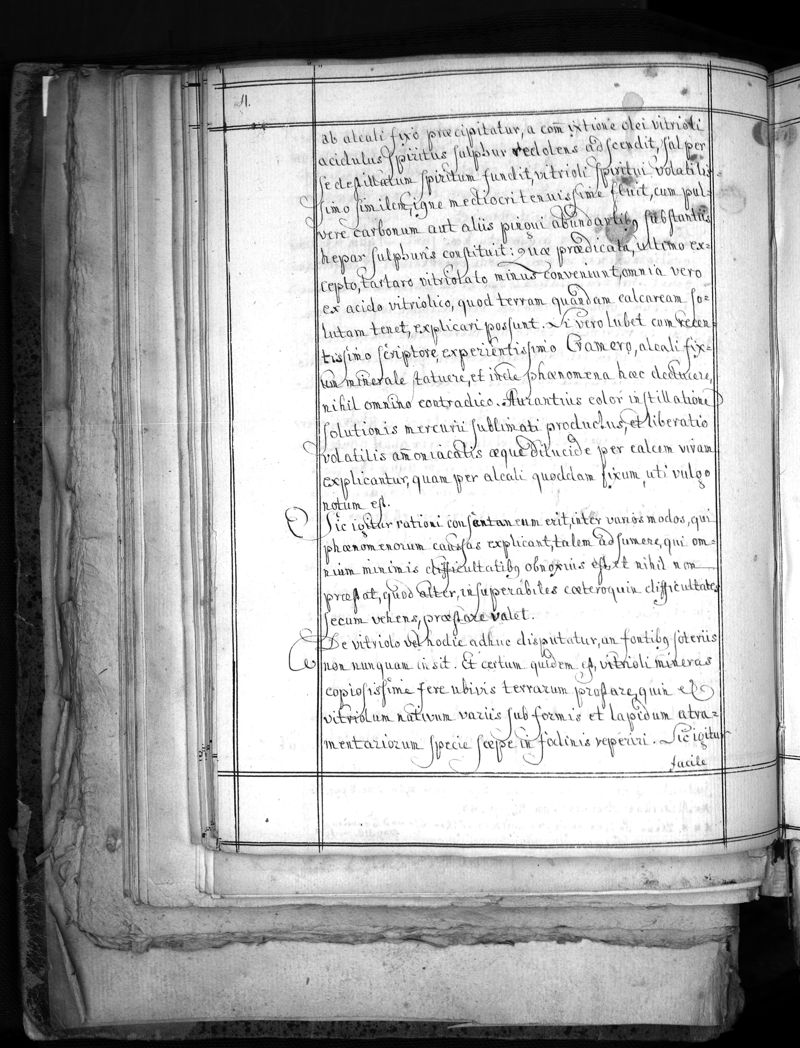 4.
ab alcali fixo præcipitatur, a com ixtione olei vitrioli
acidulus spiritus sulphur redolens adscendit, sal per
se destillatum spiritum fundit, vitrioli spiritui volatilis-
simo similem, igne mediocri tenuissime fluit, cum pul-
vere carbonum aut aliis pingui abundantibq substantiis
hepar sulphuris constituit: quæ prædicata, ultimo ex-
cepto, tartaro vitriolato minus conveniunt, omnia vero
ex acido vitriolico, quod terram quandam calcaream so=
lutam tenet, explicari possunt. Si vero lubet cum recen=
tissimo scriptore, experientissimo Cramero, alcali fix=
um minerale statuere, et inde phænomena hæc deducere,
nihil omnino contradico. Aurantius color instillatione
solutionis mercurii sublimati productus, et liberatio
volatilis amoniacalis æque dilucide per calcem vivam
explicantur, quam per alcali quoddam fixum, uti vulgo
notum est.
Sic igitur rationi consentaneum erit, inter varios modos, qui
phænomenorum caussas explicant, talem adsumere, qui om=
nium minimis difficultatibq obnoxius est, et nihil non
præstat, quod alter, insuperabiles cæteroquin difficultates
secum vehens, præstare valet.
De vitriolo vel hodie adhuc disputatur, an fontibq soteriis
non nunquam insit. Et certum quidem est, vitrioli mineras
copiosissime fere ubivis terrarum prostare, quin et
vitriolum nativum variis sub formis et lapidum atra=
mentariorum specie sæpe in fodinis reperiri. Sic igitur
facile